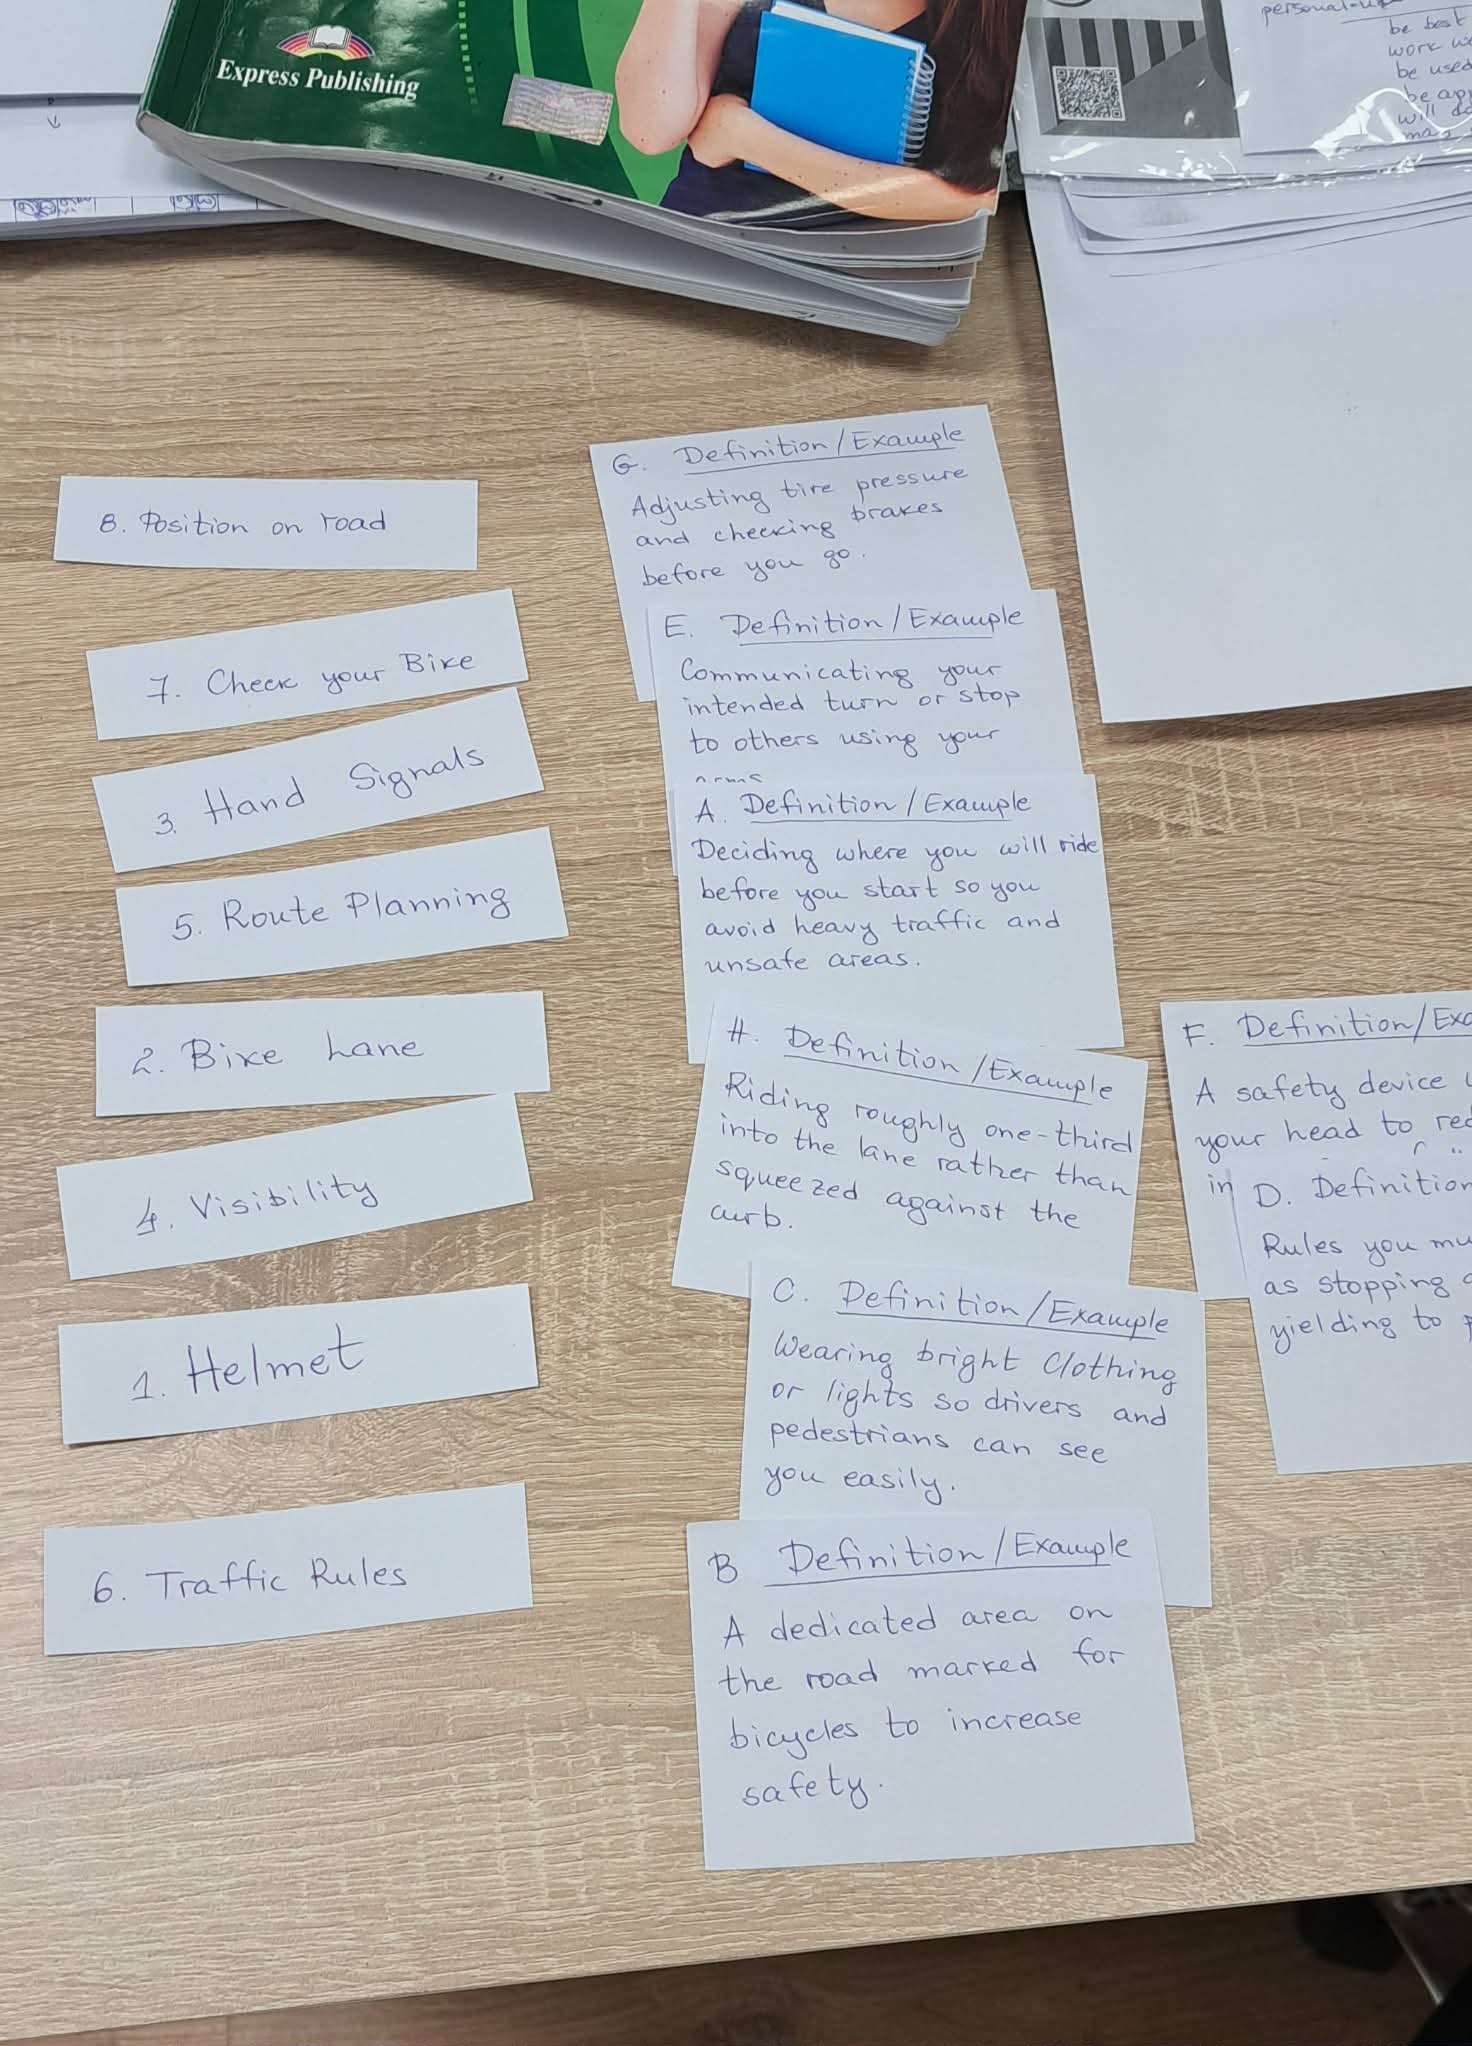 Express Publishing
personal-
be best
work
be used
be
will do
8. Position on road
7. Check your Bike
3. Hand Signals
5. Route Planning
2. Bike Lane
4. Visibility
1. Helmet
6. Traffic Rules
G. Definition/Example
Adjusting tire pressure
and checking brakes
before you go.
E. Definition/Example
Communicating your
intended turn or stop
to others using your
arms
A. Definition/Example
Deciding where you will ride
before you start so you
avoid heavy traffic and
unsafe areas.
H. Definition/Example
Riding roughly one-third
into the lane rather than
squeezed against the
curb.
C. Definition/Example
Wearing bright Clothing
or lights so drivers and
pedestrians can see
you easily.
B Definition/Example
A dedicated area on
the road marked for
bicycles to increase
safety.
F. Definition/Exa
A safety device
your head to red
in
D. Definition
Rules you mu
as stopping
yielding to p